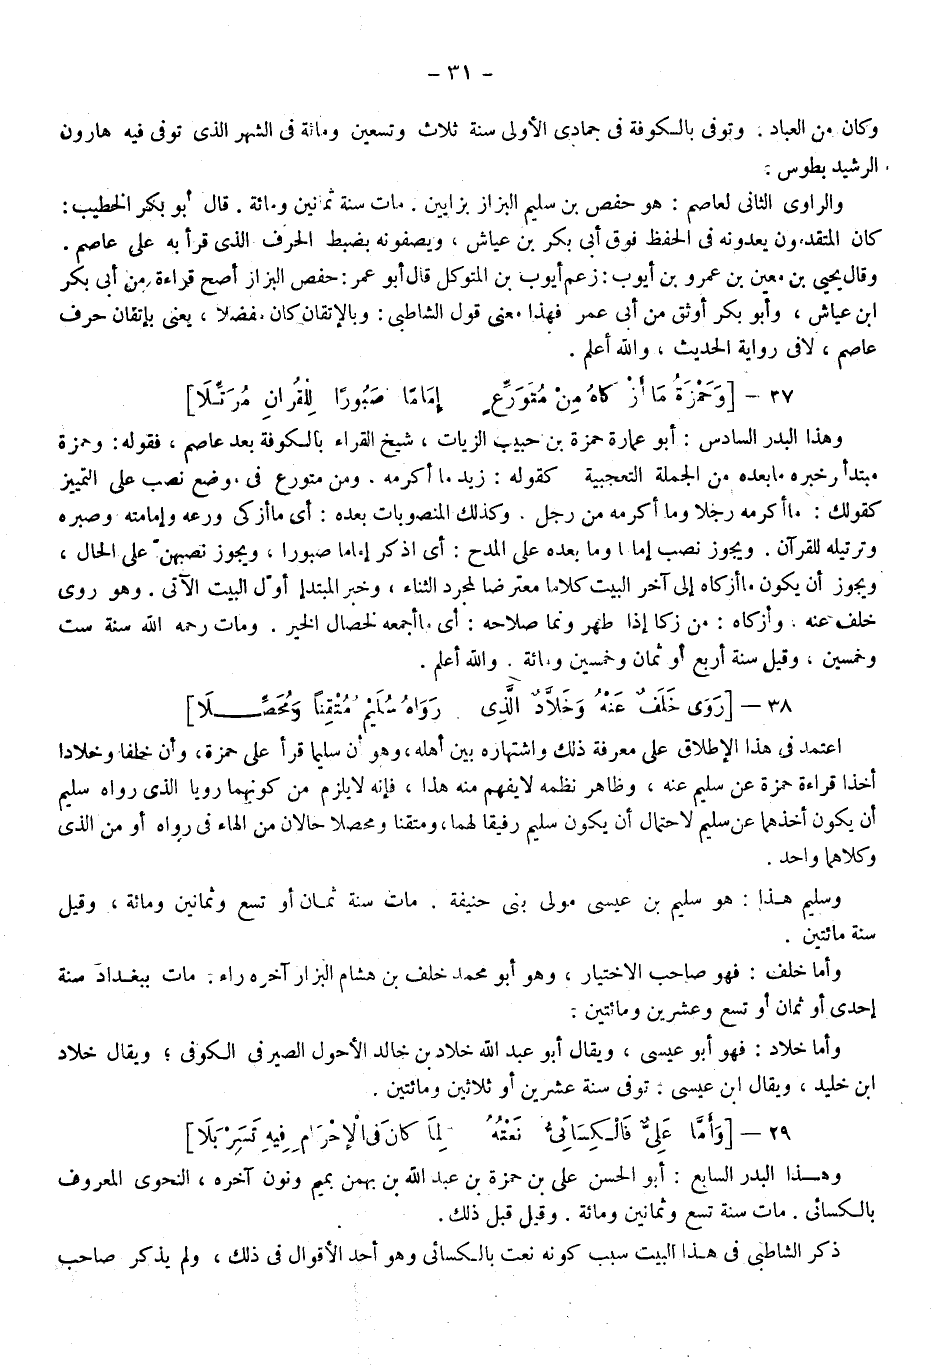 - ٣١ -
وكان من العباد . وتوفى بالكوفة فى جمادى الأولى سنة ثلاث وتسعين ومائة فى الشهر الذى توفى فيه هارون
الرشيد بطوس :
والراوى الثانى لعاصم : هو حفص بن سليم البزاز بزايين . مات سنة ثمانين ومائة . قال أبو بكر الخطيب :
كان المتقدمون يعدونه فى الحفظ فوق أبى بكر بن عياش ، ويصفونه بضبط الحرف الذى قرأ به على عاصم .
وقال يحيى بن معين بن عمرو بن أيوب : زعم أيوب بن المتوكل قال أبو عمر : حفص البزاز أصح قراءة من أبى بكر
ابن عياش ، وأبو بكر أوثق من أبى عمر فهذا معنى قول الشاطبى : وبالإتقان كان مفضلا ، يعنى بإتقان حرف
عاصم ، لافى رواية الحديث ، والله أعلم .
٣٧ - [وَحَمْزَةُ مَا أَزْكَاهُ مِنْ مُتَوَرِّعٍ إِمَامًا صَبُورًا لِلْقُرَانِ مُرَتِّلَا]
وهذا البدر السادس : أبو عمارة حمزة بن حبيب الزيات ، شيخ القراء بالكوفة بعد عاصم ، فقوله : وحمزة
مبتدأ وخبره مابعده من الجملة التعجبية كقوله : زيد ما أكرمه . ومن متورع فى موضع نصب على التمييز
كقولك : ماأكرمه رجلا وما أكرمه من رجل . وكذلك المنصوبات بعده : أى ماأزكى ورعه وإمامته وصبره
وترتيله للقرآن . ويجوز نصب إماما وما بعده على المدح : أى اذكر إماما صبورا ، ويجوز نصبهنّ على الحال ،
ويجوز أن يكون ماأزكاه إلى آخر البيت كلاما معترضا لمجرد الثناء ، وخبر المبتدإ أوّل البيت الآتى . وهو روى
خلف عنه . وأزكاه : من زكا إذا طهر ونما صلاحه : أى ماأجمعه لخصال الخير . ومات رحمه الله سنة ست
وخمسين ، وقيل سنة أربع أو ثمان وخمسين ومائة . والله أعلم .
٣٨ - [رَوَى خَلَفٌ عَنْهُ وَخَلَّادٌ الَّذِى رَوَاهُ سُلَيْمٌ مُتْقِنًا وَمُحَصِّلَا]
اعتمد فى هذا الإطلاق على معرفة ذلك واشتهاره بين أهله ، وهو أن سليما قرأ على حمزة ، وأن خلفا وخلادا
أخذا قراءة حمزة عن سليم عنه ، وظاهر نظمه لايفهم منه هذا ، فإنه لايلزم من كونهما رويا الذى رواه سليم
أن يكون أخذهما عن سليم لاحتمال أن يكون سليم رفيقا لهما ، ومتقنا ومحصلا حالان من الهاء فى رواه أو من الذى
وكلاهما واحد .
وسليم هذا : هو سليم بن عيسى مولى بنى حنيفة . مات سنة ثمان أو تسع وثمانين ومائة ، وقيل
سنة مائتين .
وأما خلف : فهو صاحب الاختيار ، وهو أبو محمد خلف بن هشام البزار آخره راء : مات ببغداد سنة
إحدى أو ثمان أو تسع وعشرين ومائتين :
وأما خلاد : فهو أبو عيسى ، ويقال أبو عبد الله خلاد بن خالد الأحول الصيرفى الكوفى ؛ ويقال خلاد
ابن خليد ، ويقال ابن عيسى : توفى سنة عشرين أو ثلاثين ومائتين .
٢٩ - [وَأَمَّا عَلِيٌّ فَالْكِسَائِىُّ نَعْتُهُ لِمَا كَانَ فِى الْإِحْرَامِ فِيهِ تَسَرْبَلَا]
وهذا البدر السابع : أبو الحسن على بن حمزة بن عبد الله بن بهمن بميم ونون آخره ، النحوى المعروف
بالكسائى . مات سنة تسع وثمانين ومائة . وقيل قبل ذلك .
ذكر الشاطبى فى هذا البيت سبب كونه نعت بالكسائى وهو أحد الأقوال فى ذلك ، ولم يذكر صاحب